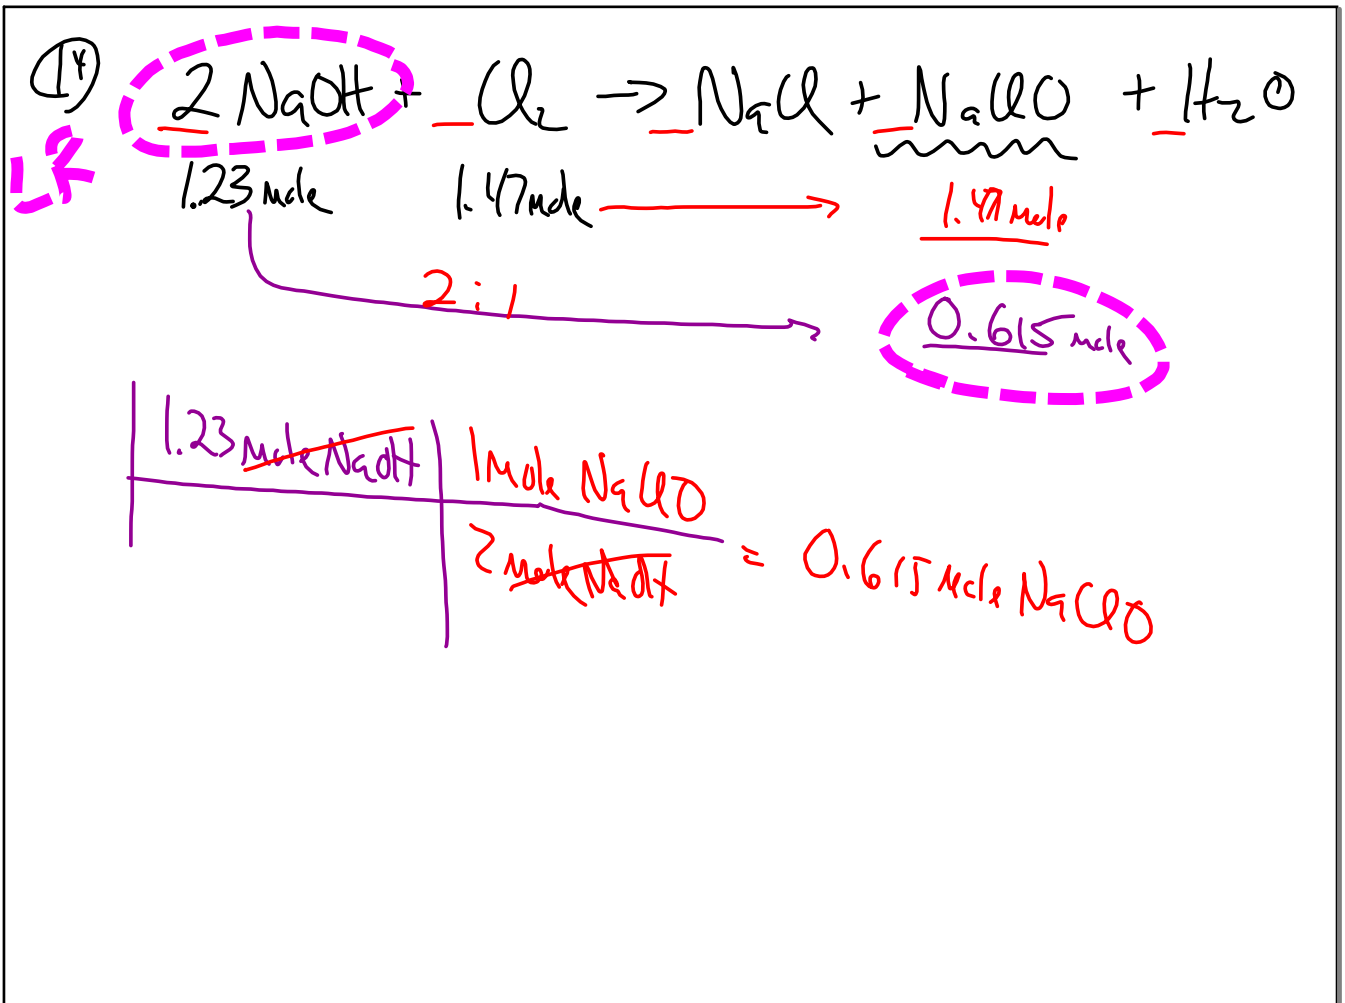 14 2 NaOH + _ Cl2 → _ NaCl + _ NaClO + _ H2O
LR
1.23 mole 1.47 mole → 1.47 mole
2:1
0.615 mole
1.23 mole NaOH 1 mole NaClO
2 mole NaOH = 0.615 mole NaClO